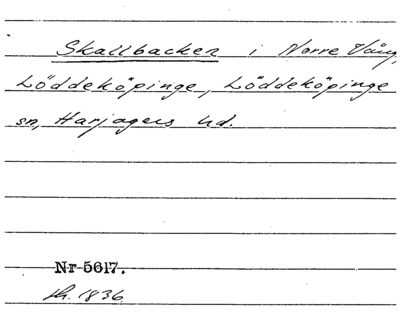 Skallbacken i Norre Vång,
Löddeköpinge, Löddeköpinge
sn, Harjagers hd.
Nr 5617.
sk. 1836